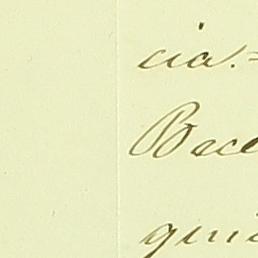 cia.=
Bece
qui